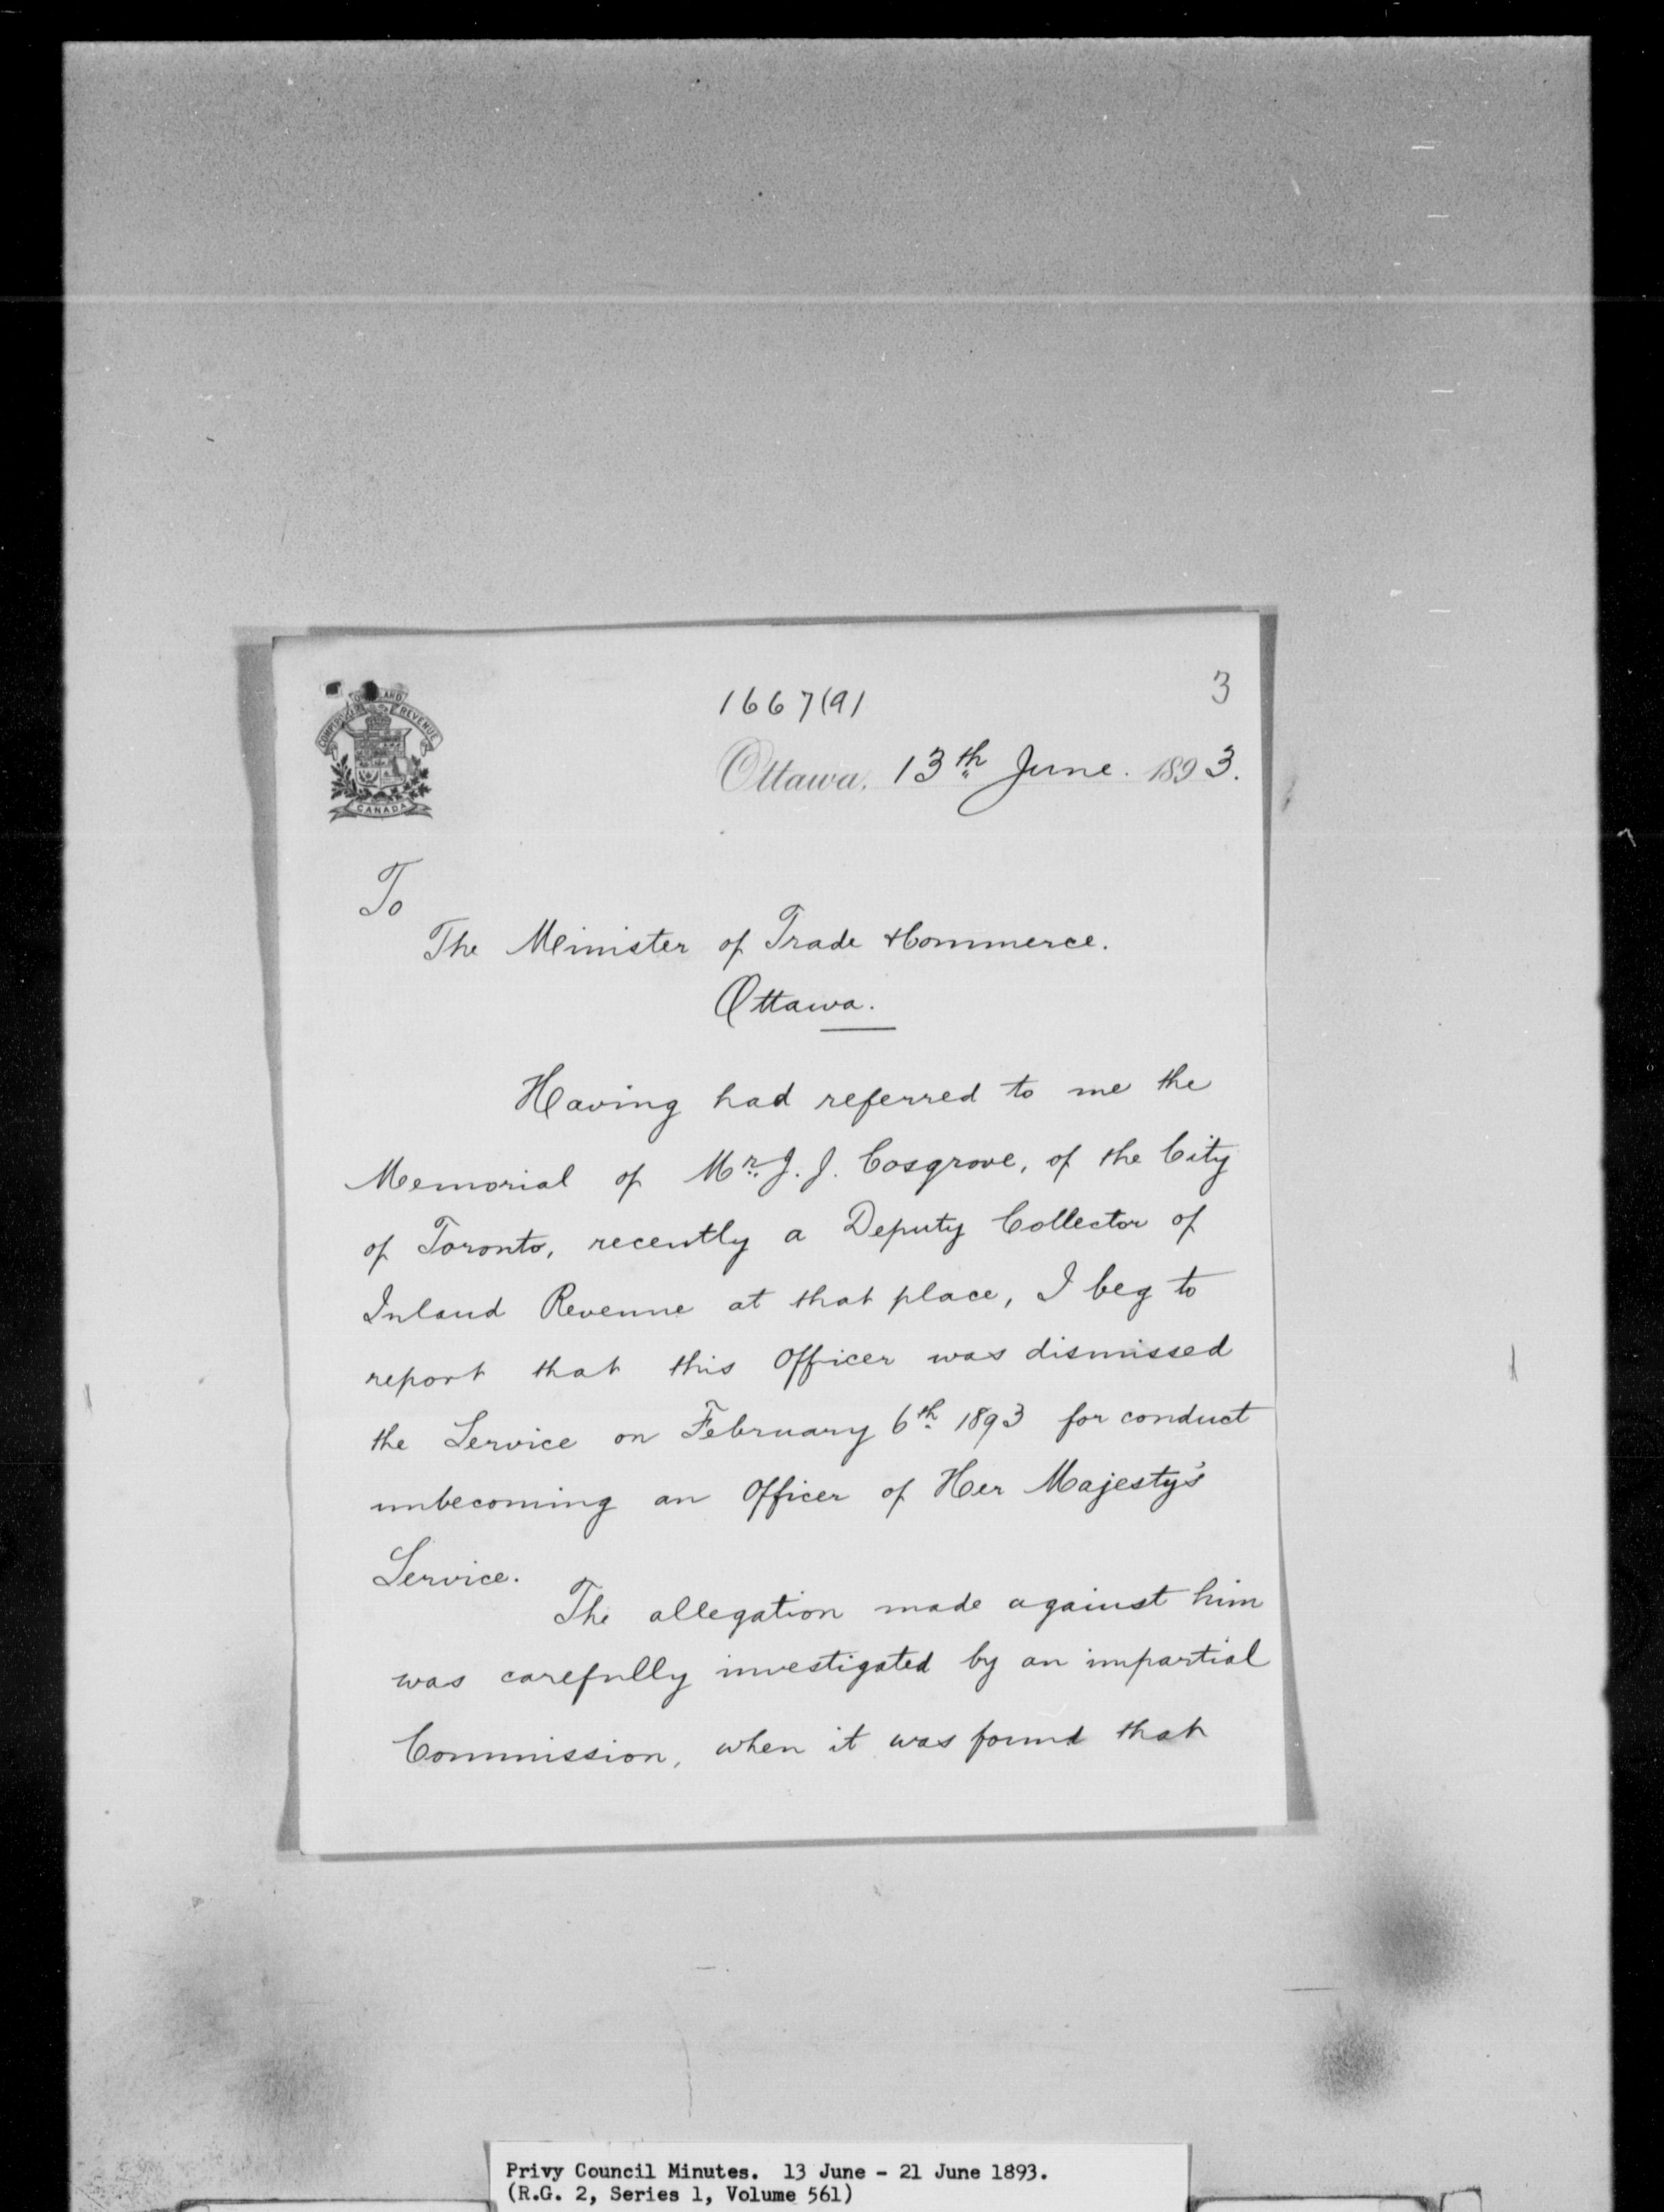 3
1667(a)
COMPTROLLER OF INLAND REVENUE
CANADA
Ottawa, 13th June. 1893.
To
The Minister of Trade & Commerce.
Ottawa.
Having had referred to me the
Memorial of Mr. J. J. Cosgrove, of the City
of Toronto, recently a Deputy Collector of
Inland Revenue at that place, I beg to
report that this Officer was dismissed
the Service on February 6th 1893 for conduct
unbecoming an Officer of Her Majesty's
Service.
The allegation made against him
was carefully investigated by an impartial
Commission, when it was found that
Privy Council Minutes. 13 June - 21 June 1893.
(R.G. 2, Series 1, Volume 561)